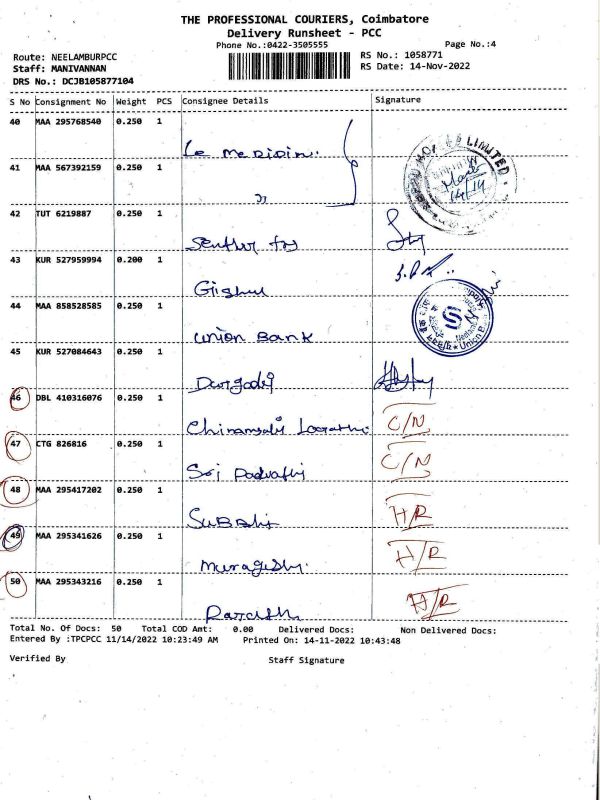 THE PROFESSIONAL COURIERS, Coimbatore
Delivery Runsheet - PCC
Phone No.:0422-3505555 Page No.:4
Route: NEELAMBURPCC RS No.: 1058771
Staff: MANIVANNAN RS Date: 14-Nov-2022
DRS No.: DCJB105877104
S No Consignment No Weight PCS Consignee Details Signature
40 MAA 295768540 0.250 1
Le meridin.
41 MAA 567392159 0.250 1
42 TUT 6219887 0.250 1
Senthur
43 KUR 527959994 0.200 1
44 MAA 858528585 0.250 1
Union Bank
45 KUR 527084643 0.250 1
46 DBL 410316076 0.250 1
C/N
47 CTG 826816 0.250 1
Sri C/N
48 MAA 295417202 0.250 1
H/R
49 MAA 295341626 0.250 1
H/R
50 MAA 295343216 0.250 1
H/R
Total No. Of Docs: 50 Total COD Amt: 0.00 Delivered Docs: Non Delivered Docs:
Entered By :TPCPCC 11/14/2022 10:23:49 AM Printed On: 14-11-2022 10:43:48
Verified By Staff Signature